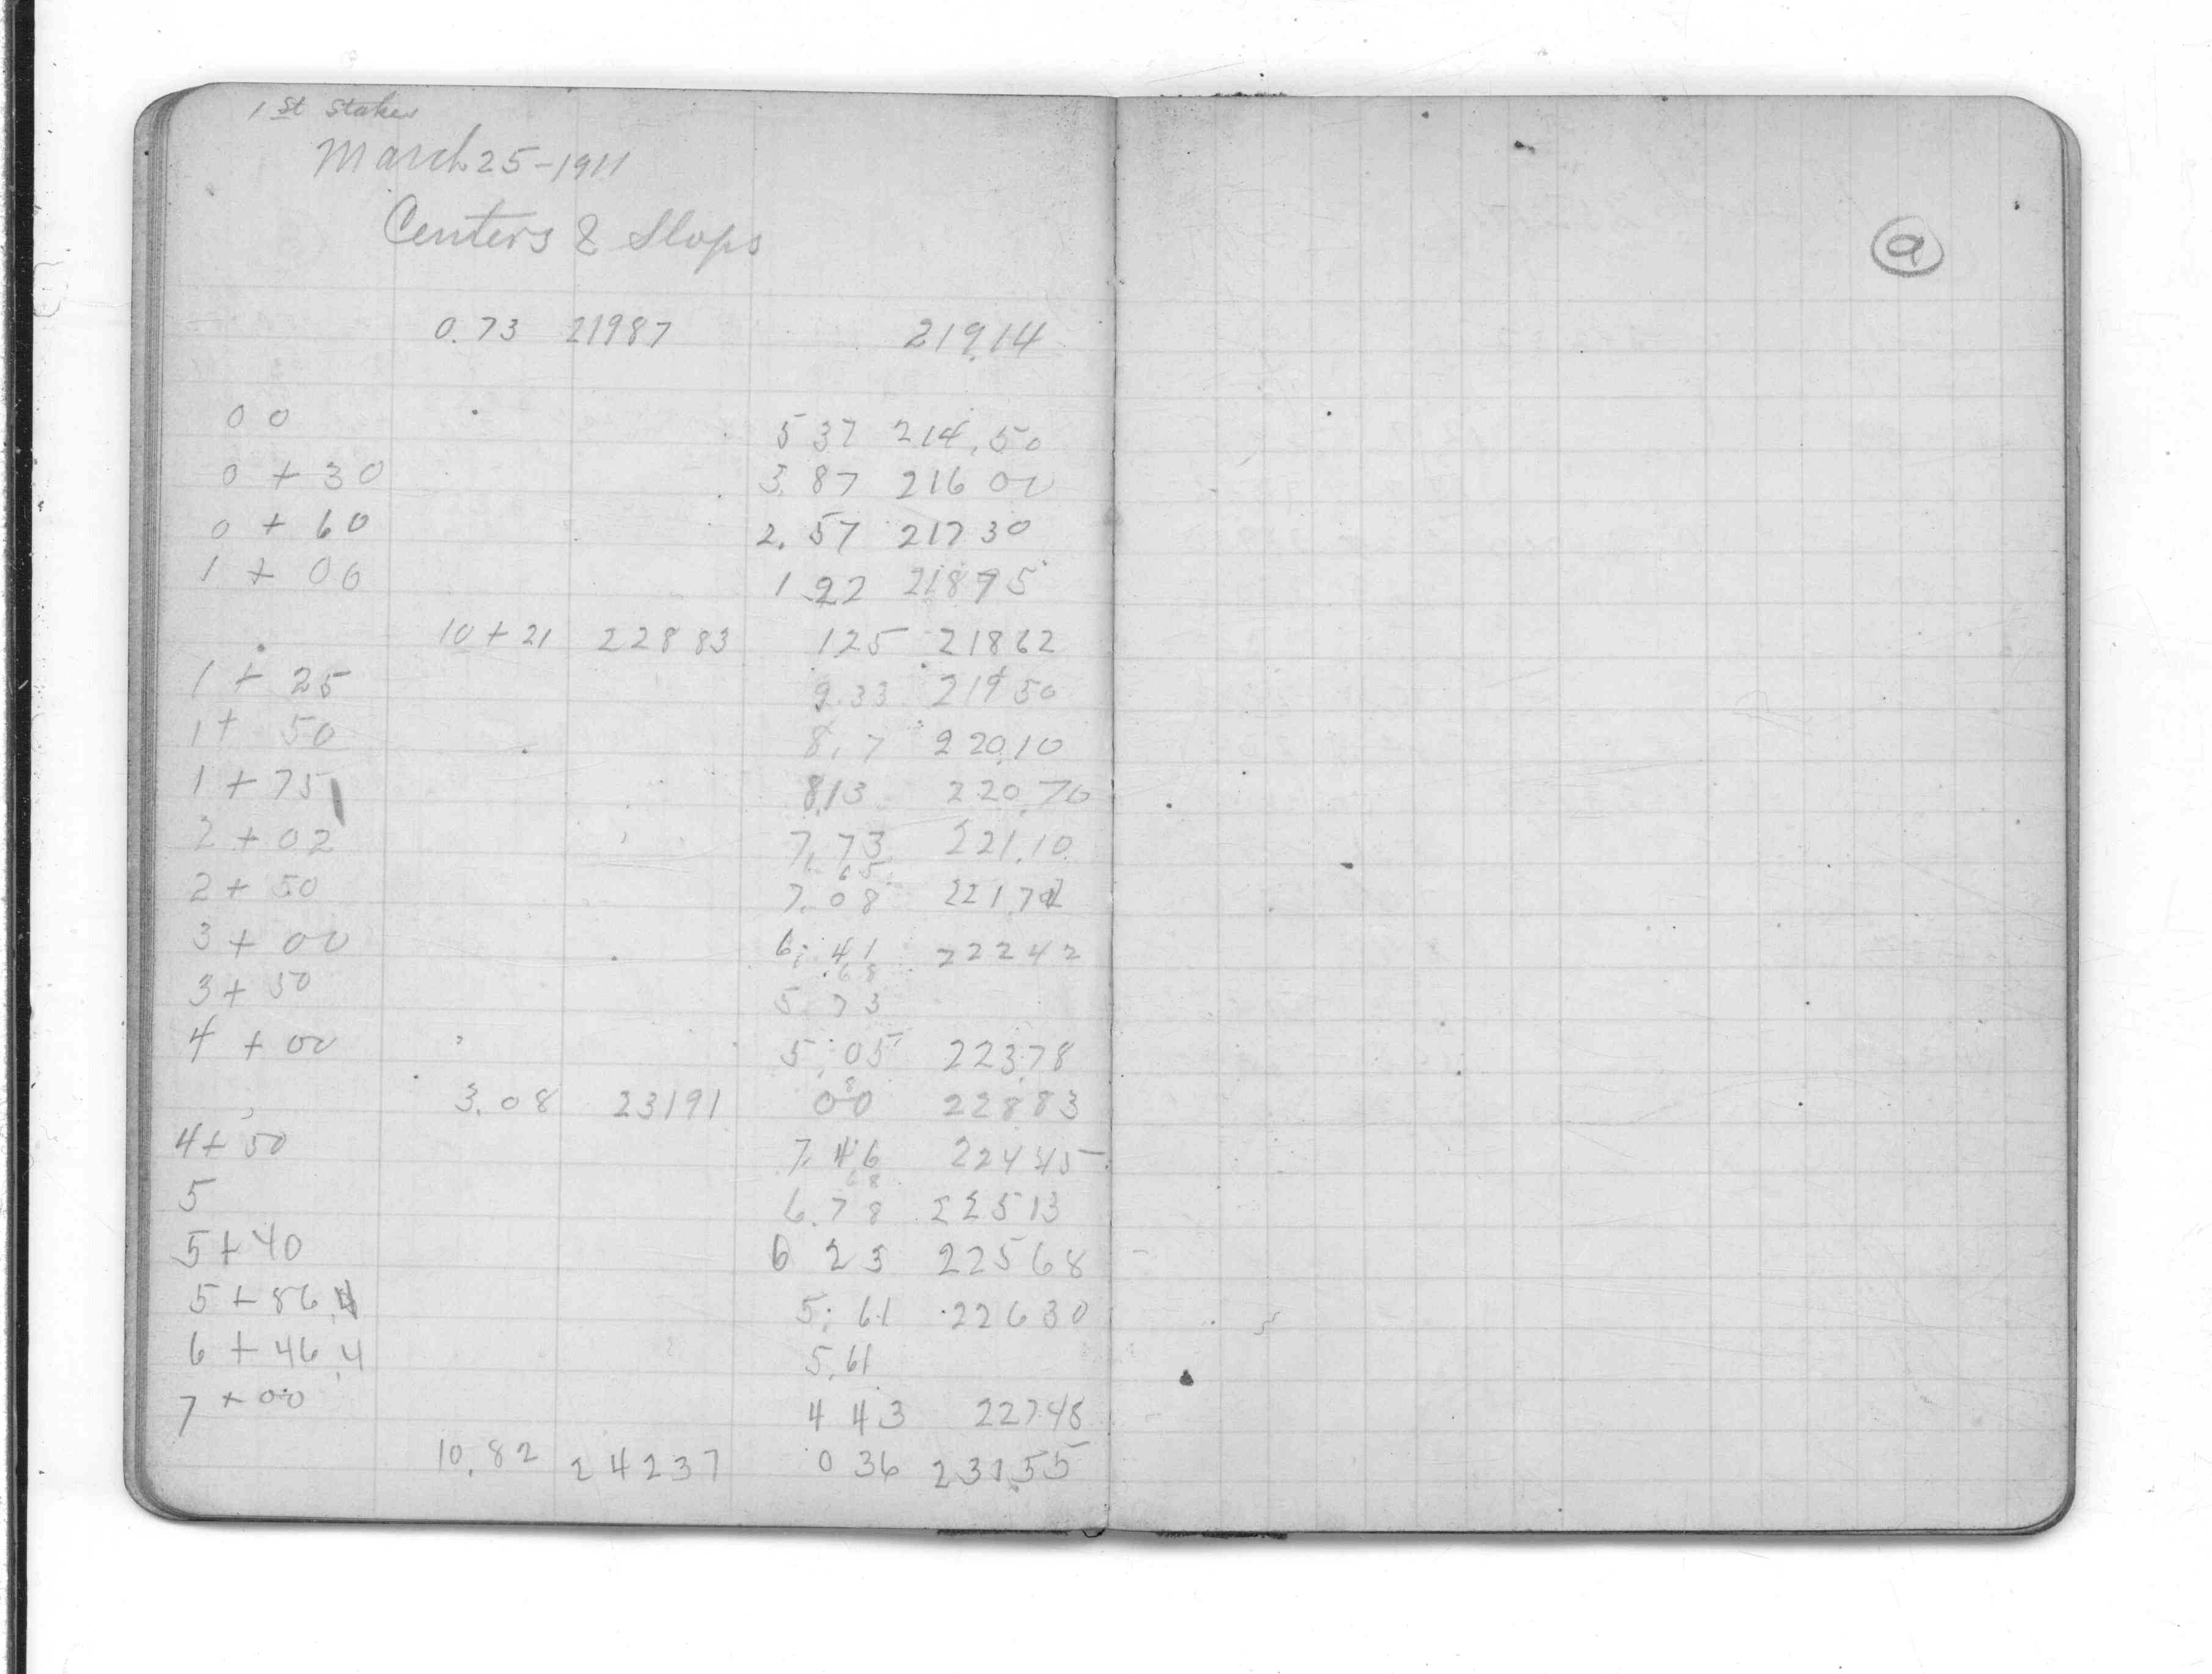 1 st Stakes
March 25-1911
Centers & Slops
a
0.73 21987 219.14
00 5 37 214.50
0 + 30 3.87 216 00
0 + 60 2.57 217 30
1 + 00 1 22 21875
10+21 22883 125 21862
1 + 25 9.33 219 50
1+ 50 8.7 220.10
1 + 75 8.13 220.70
2 + 02 7.73 221.10
65
2 + 50 7.08 221.7
3 + 00 6.41 22242
.68
3 + 50 5 73
4 + 00 5.05 223.78
3.08 23191 00 22883
4+ 50 7.46 22445
68
5 6.78 22513
5+40 6 23 22568
5 + 86. 5.61 22630
6 + 46.4 5.61
7 + 00 4 43 22748
10.82 24237 0 36 231.55